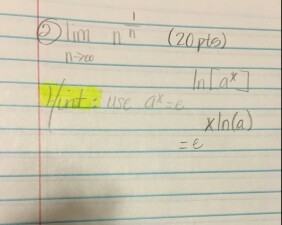 ② lim n^(1/n) (20 pts)
n→∞
Hint: use a^x = e^(ln[a^x])
= e^(x ln(a))